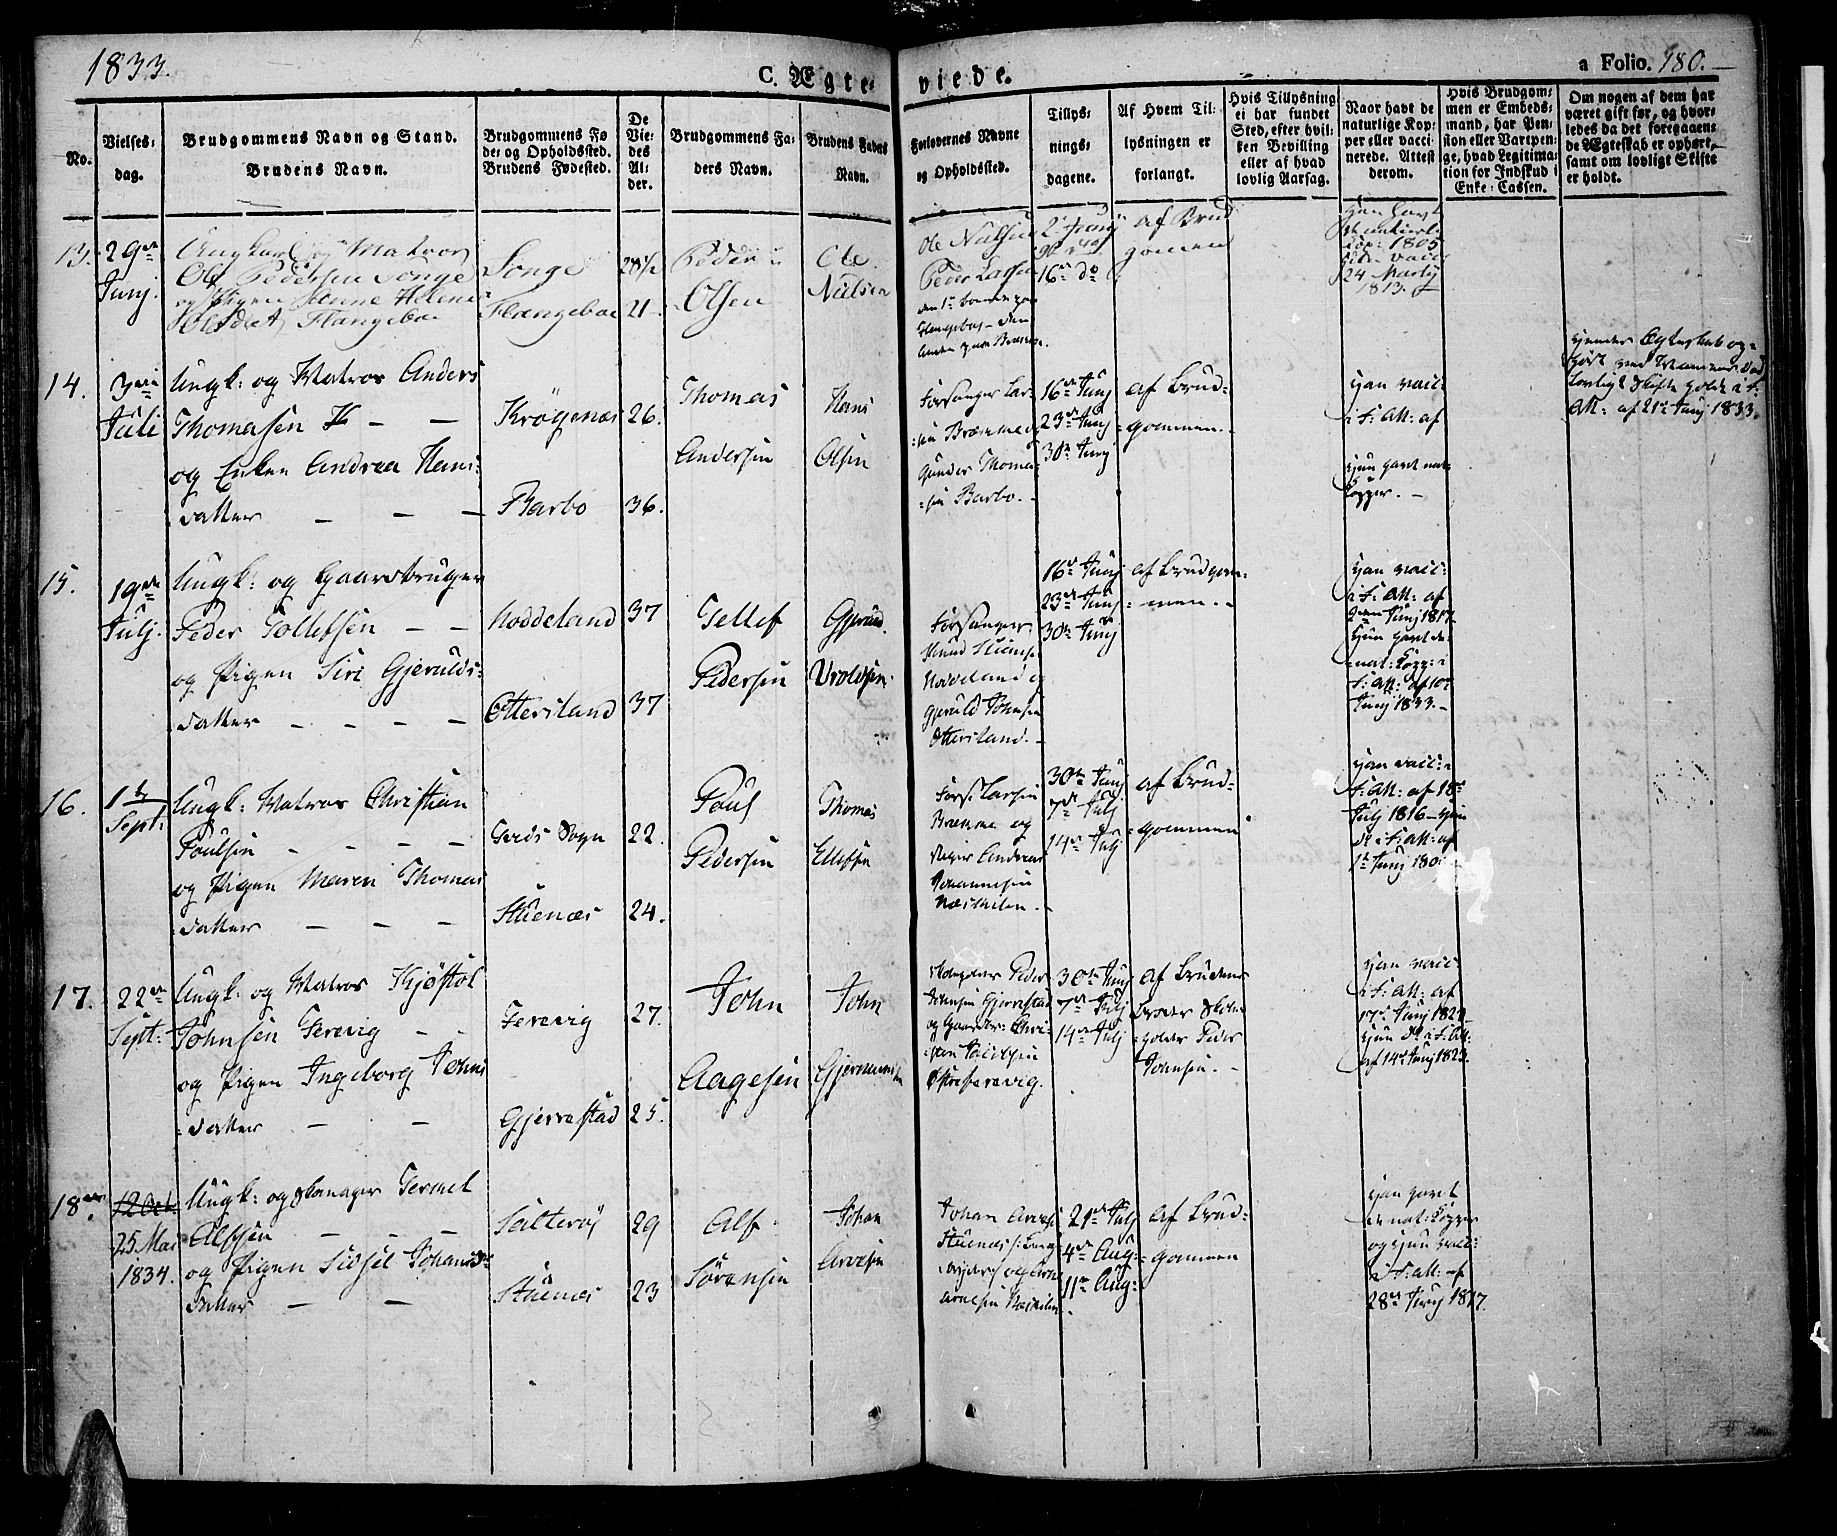 1833.
C. Ægte-
viede.
a Folio. 180.
No.
Vielses-
dag.
Brudgommens Navn og Stand.
Brudens Navn.
Brudgommens Fø
de- og Opholdssted.
Brudens Fødested.
De
Vie-
des
Al-
der.
Brudgommens Fa-
ders Navn.
Brudens Faders
Navn.
Forlovernes Navne
og Opholdssted.
Tillys-
nings-
dagene.
Af Hvem Til-
lysningen er
forlangt.
Hvis Tillysning
ei har fundet
Sted, efter hvil-
ken Bevilling
eller af hvad
lovlig Aarsag.
Naar havt de
naturlige Kop-
per eller vacci-
nerede. Attest
derom.
Hvis Brudgom-
men er Embeds-
mand, har Pen-
sion eller Vartpen-
ge, hvad Legitima-
tion for Indskud i
Enke-Cassen.
Om nogen af dem har
været gift før, og hvor-
ledes da det foregaaen-
de Ægteskab er ophørt,
samt om lovligt Skifte
er holdt.
13.
29de
Junj.
Ungkarl og Matros
Ole Pedersen Songe
og Pigen Anne Helene
Olsdat. Flangeboe
Songe
Flangeboe
28½
21
Peder
Olsen
Ole
Nielsen
Ole Nielsen
Peder Larsen
2den Junij
9de
16de do
af Brud
gomen
1805
24 Martij
1813.
14.
3die
Juli
Ungk: og Matros Anders
Thomasen K – –
og Enken Andrea Hans-
datter – – –
Krøgenæs
Barbo
26.
36.
Thomas
Andersen
Hans
Olsen
Forsanger Lar-
-sen Bræmme
Gunder Thoma-
-sen Barbo. -
16de Junj
23de Junj
30te Junj
af Brud-
-gommen. -
Han vacc:
i F: Att: af
Hun havt nat:
Kopper. -
Hennes Ægteskab op-
hørt ved Mannens Død
Lovligt Skifte holdt i F:
Att: af 21de Junj 1833.
15.
19de
Julj.
Ungk: og Gaardbruger
Peder Tollefsen – –
og Pigen Siri Gjerulds-
datter – – – –
Noddeland
Otterstand
37
37
Tellef
Pedersen
Gjeruld
Uroldsen.
Forsanger
Knud
Noddeland og
Gjeruld Johnsen
Otterstand. -
16de Junj
23de Junj
30te Junj
af Brudgom-
-men. -
Han vacc:
i F: Att: af
2den Junj 1817
Hun havt de
nat: Kopp: i
F: Att: af 10de
Junj 1833. -
16.
1ste
Sept:
Ungk: Matros Christian
Poulsen – – – –
og Pigen Maren Thomas
datter – – –
Sogn
Stuenæs
22.
24.
Poul
Pedersen
Thomas
Ellefsen
Fors: Larsen
Bræmme og
Andreas
Johannesen
Næskilen. -
30te Junj
7de Julj
14de Julj
af Brud-
-gommen
Han vacc: i
F: Att: af 18de
Julj 1816 - Hun
do i F: Att: af
1ste Junj 180
17.
22de
Sept:
Ungk: og Matros Kjøstol
Johnsen Ferevig – –
og Pigen Ingeborg Johns
datter – –
Ferevig
Gjerrestad
27.
25.
John
Aagesen
John
Gjermunsen
Skolholder Peder
Johnsen Gjerrestad
og Gaardbr: Chri-
-sten Jacobsen
Østre Ferevig.
30te Junj
7de Julj
14de Julj
af Brudens
Broder Skole
-holder Peder
Johnsen. -
Han vacc:
i F: Att: af
17de Junj 1822
Hun do i F: Att:
af 14de Junj 1823.
18.
12 Oct
25 Mai
1834.
Ungk: og Skanager Termel
Alfsen – – –
og Pigen Sidsel Johans-
datter – –
Salterøj
Stuenæs
29
23
Alf
Sørensen
Johan
Arvesen
Johan Arvesen
Stuenæs
og Arne
Arnesen Næskilen
21de Julj
4de Aug:
11te Aug:
af Brud-
-gommen
Han havt
de nat: Kopper
og Hun vacc:
i F: Att: af
28de Junj 1817.